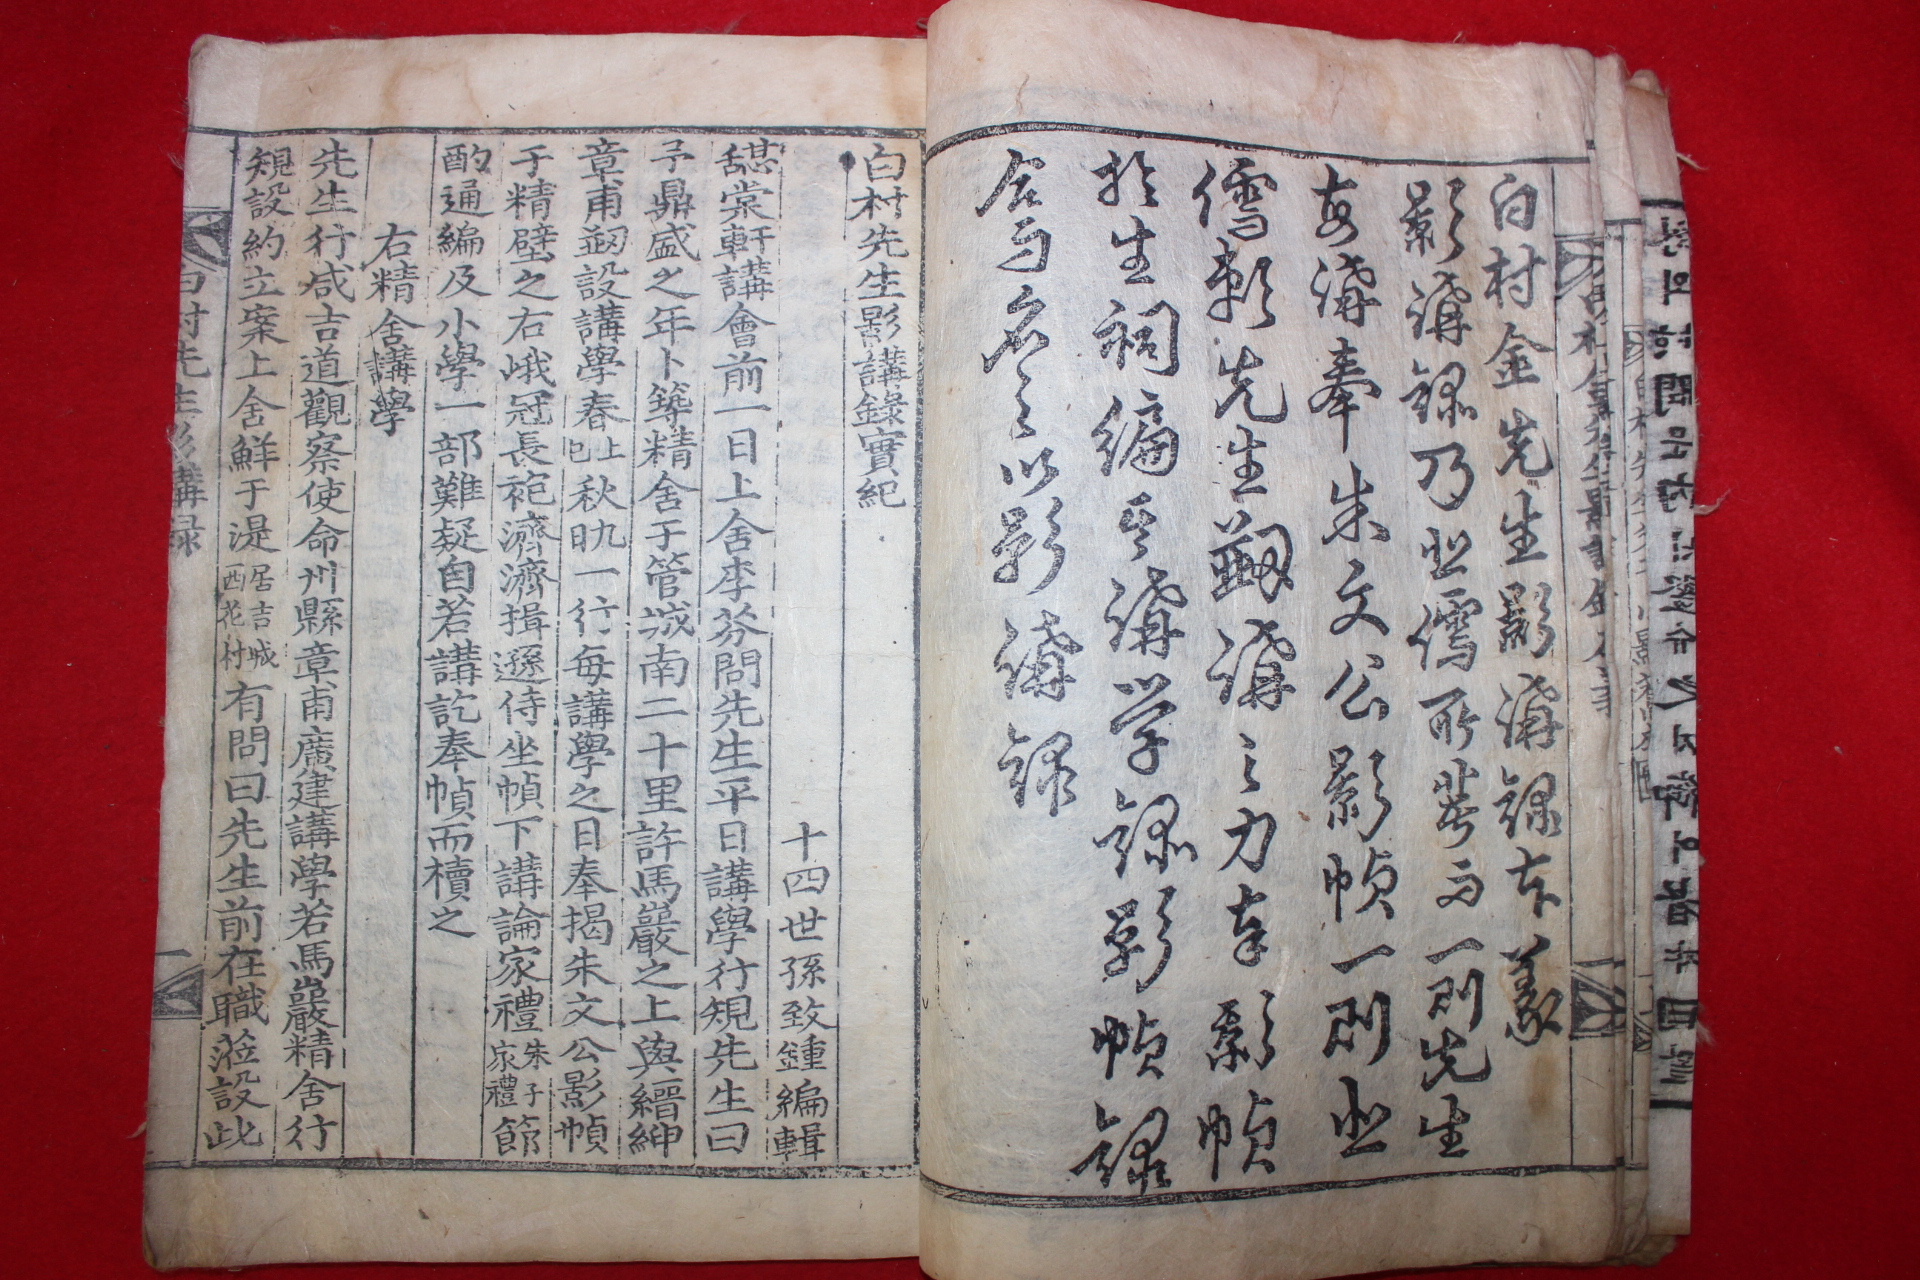 白村金先生影講錄本義
影講錄乃北儒所裒而一則先生
每講奉朱文公影幀一則北
儒賴先生刱講之力奉影幀
於生祠編其講学錄影幀錄
合而名之以影講錄
白村先生影講錄實紀
十四世孫致鍾編輯
嚭棠軒講會前一日上舍李芬問先生平日講學行規先生曰
予鼎盛之年卜築精舍于管城南二十里許馬巖之上與縉紳
章甫刱設講學春上巳秋九日一行每講學之日奉揭朱文公影幀
于精壁之右峨冠長袍濟濟揖遜侍坐幀下講論家禮朱子家禮節
酌通編及小學一部難疑自若講訖奉幀而櫝之
右精舍講學
先生行咸吉道觀察使命州縣章甫廣建講學若馬巖精舍行
規設約立案上舍鮮于湜居吉城西花村有問曰先生前在職蒞設此
白村先生影講録
一